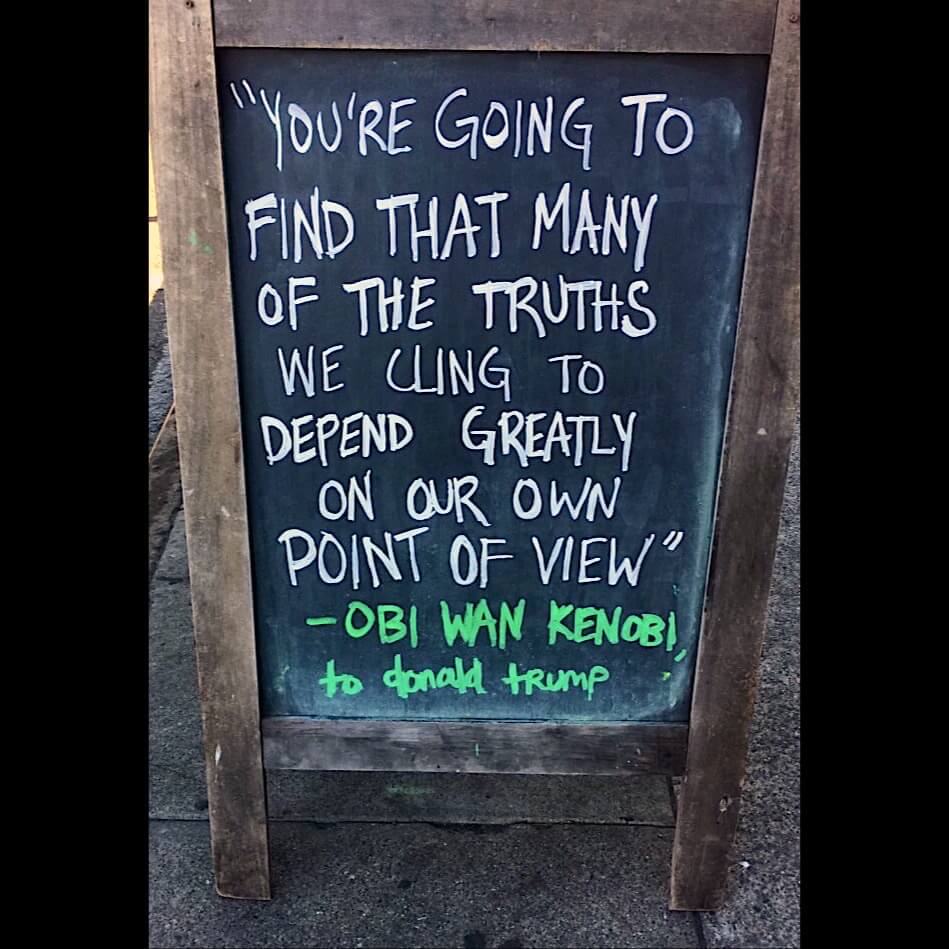 "YOU'RE GOING TO
FIND THAT MANY
OF THE TRUTHS
WE CLING TO
DEPEND GREATLY
ON OUR OWN
POINT OF VIEW"
-OBI WAN KENOBI,
to donald trump